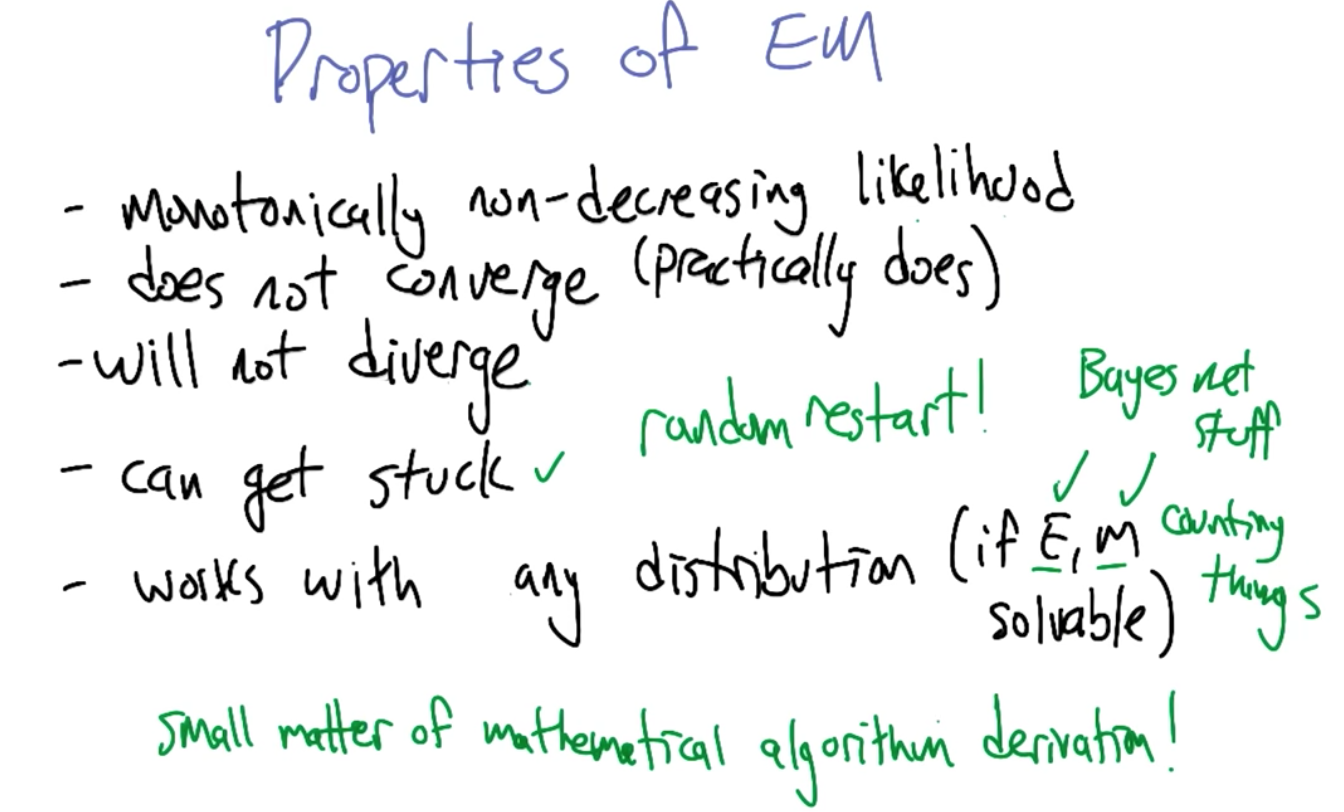 Properties of EM
- monotonically non-decreasing likelihood
- does not converge (practically does)
- will not diverge
random restart!
Bayes net
stuff
- can get stuck ✓
✓ ✓
- works with any distribution (if E, M
solvable)
counting
things
small matter of mathematical algorithm derivation!